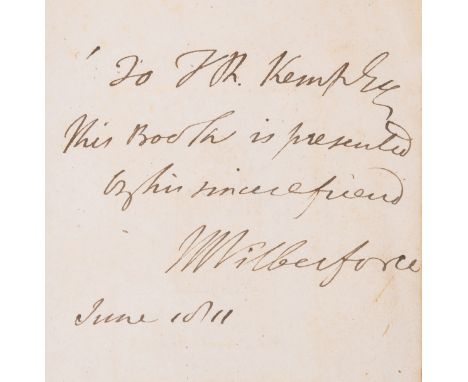 To T R. Kemp Esq
this Book is presented
by his sincere friend
W Wilberforce
June 1811